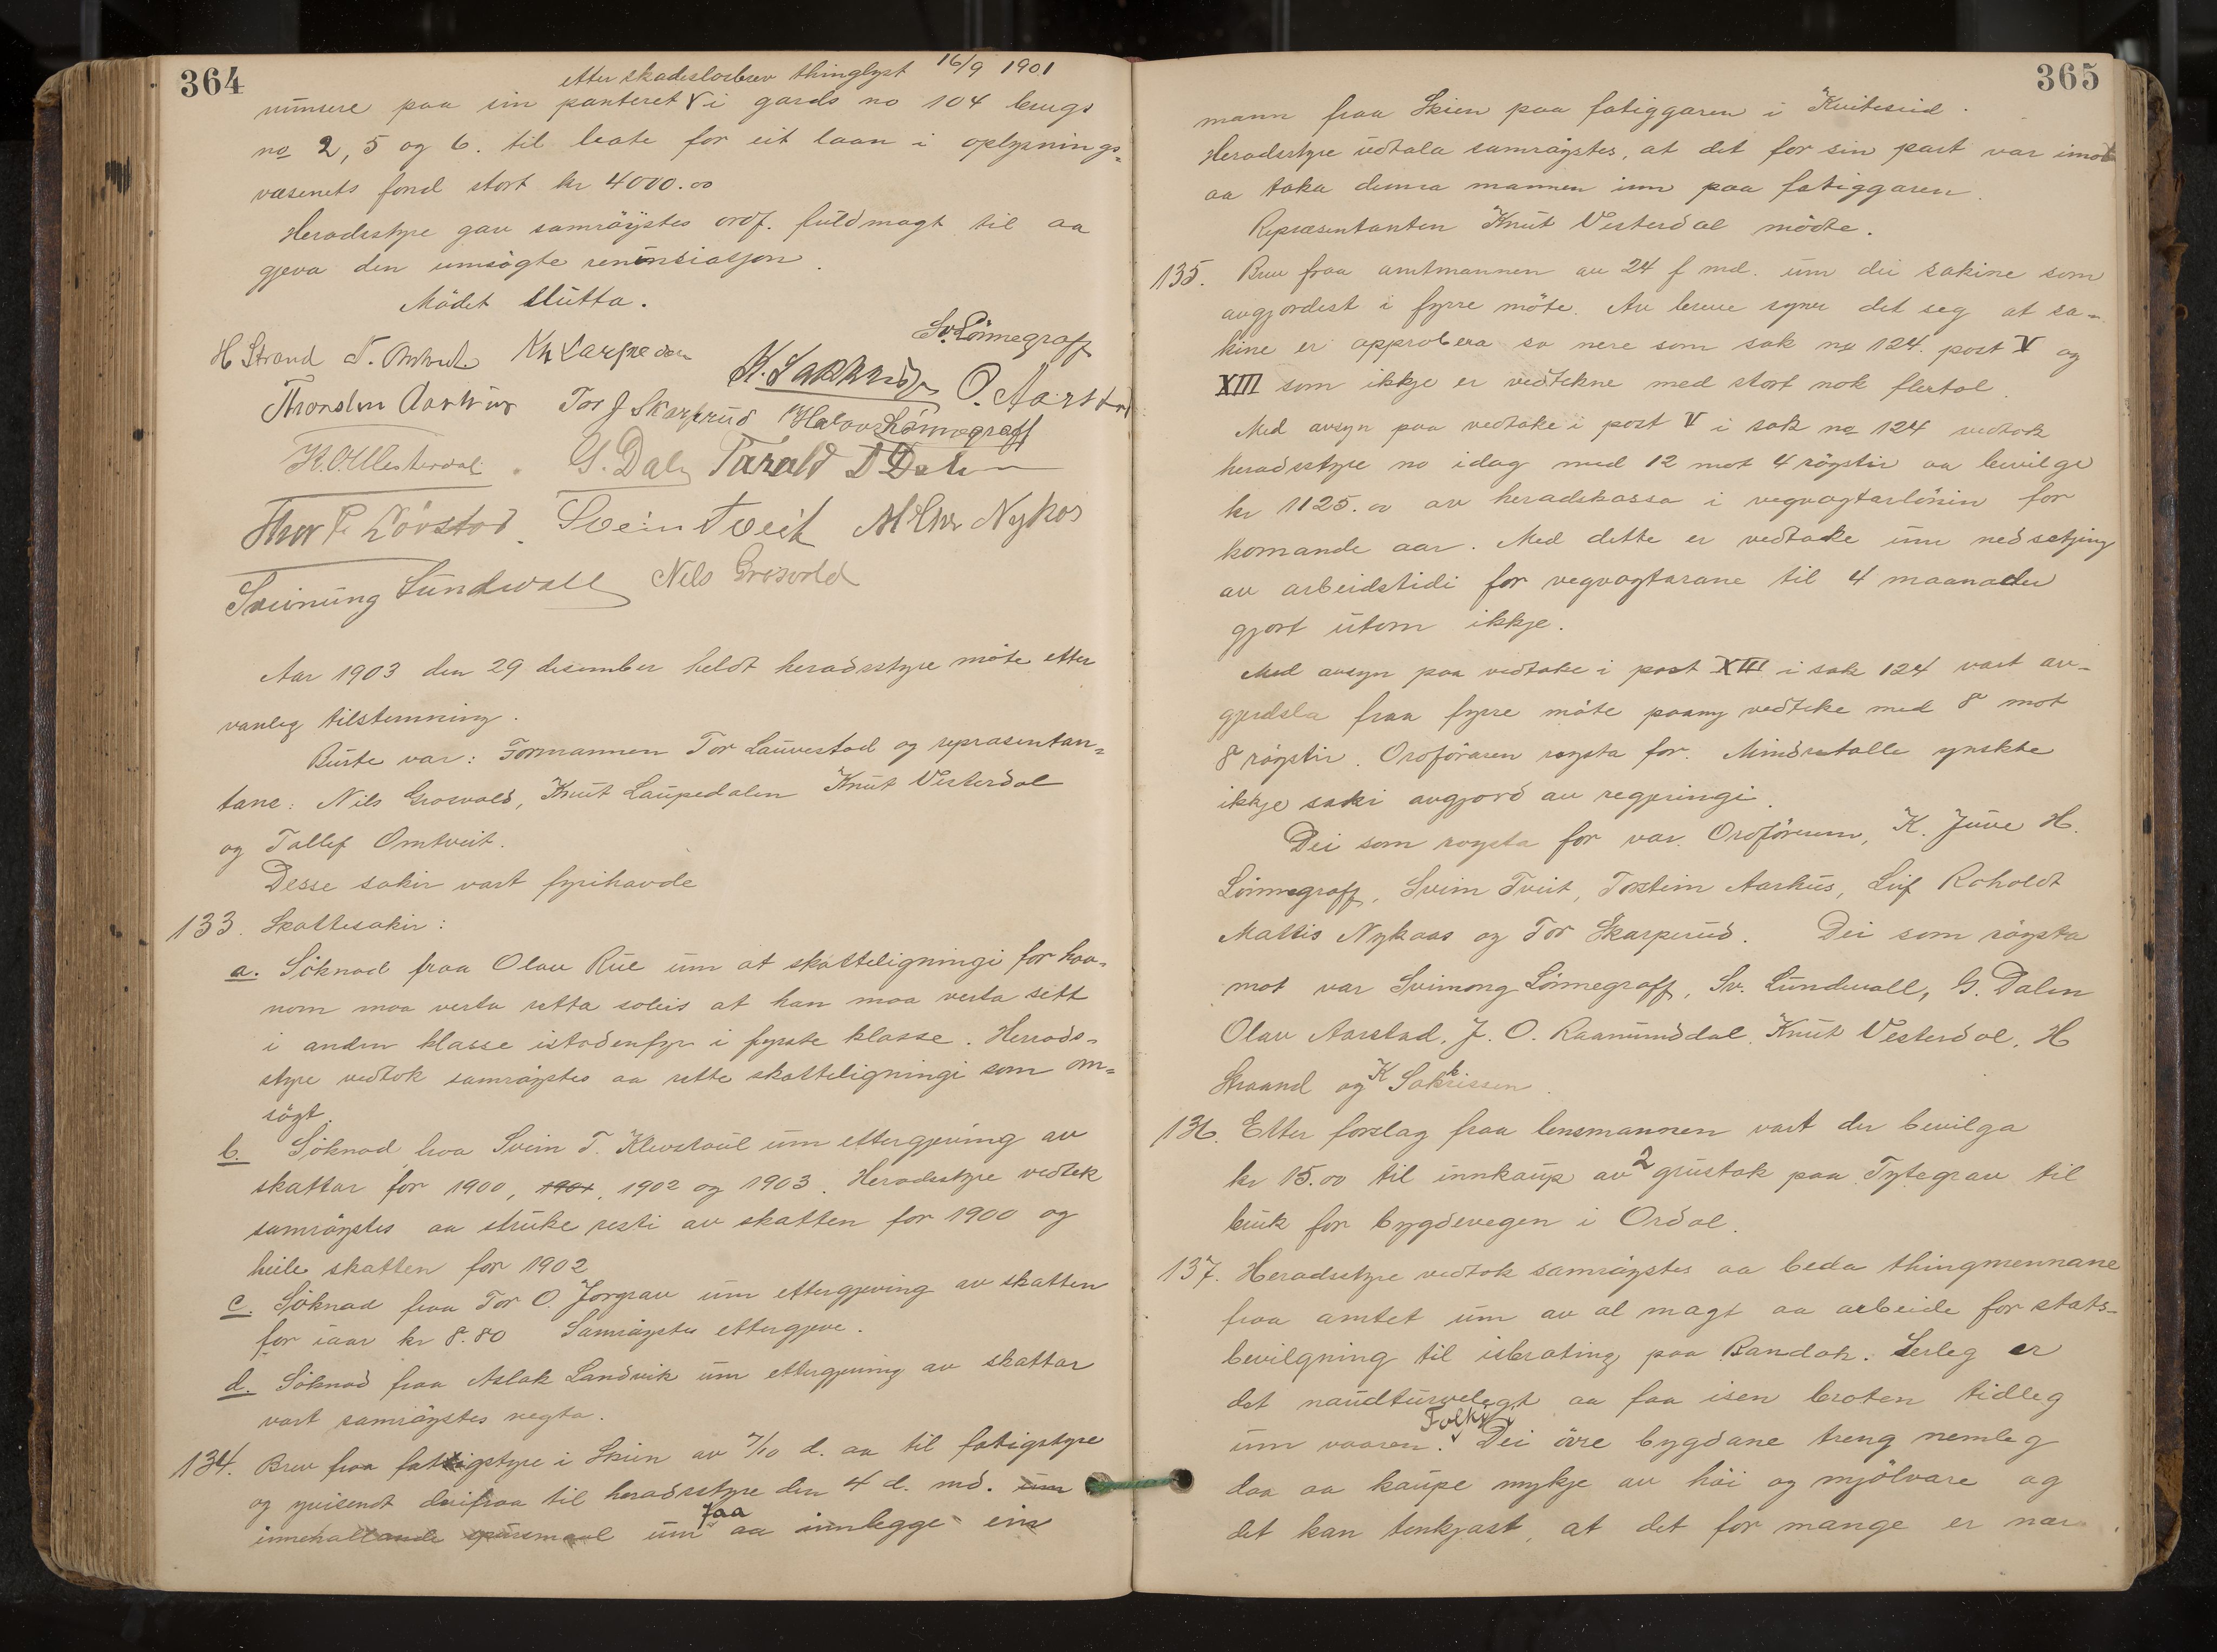 364
etter skadeslosbrev thinglyst 16/9 1901
umsere paa sin panteret i gards no 104 brugs
no 2, 5 og 6. til beate for eit laan i oplysnings=
væsenets fond stort kr 4000.00
Heradsstyre gav samröystes ordf. fuldmagt til aa
gjeva den umsögte renunsiasjon.
Mödet slutta.
Sv. Lönnegraff
H Strand T. Omtveit Kn Laupedalen
K. Sakkrisson O. Aarstad
Thorsten Aarhus Tor J Skarperud Halvor Lönnegraff
K. O. Vesterdal. G. Dalen Tarald T Dalen
Thor P Lövstad. Svein Tveit M Chr Nykos
Sveinung Lundwall Nils Grosvold
Aar 1903 den 29 desember heldt heradsstyre möte etter
vanleg tilstemning.
Burte var: Formannen Tor Lauvestad og representan=
tane: Nils Grosvold, Knut Laupedalen Knut Vesterdal
og Tallef Omtveit.
Desse sakir vart fyrihavde
133. Skattesakir:
a. Söknad fraa Olav Rue um at skatteligningi for hon=
nom maa verta retta soleis at han maa verta sett
i anden klasse istadenfyr i fyrste klasse. Herads=
styre vedtok samröystes aa rette skatteligningi som om=
sögt.
b. Söknad fraa Svein T. Klevstaul um ettergjeving av
skattar for 1900, 1901, 1902 og 1903. Heradsstyre vedtok
samröystes aa struke resti av skatten for 1900 og
heile skatten for 1902
c. Söknad fraa Tor O. Jorgrav um ettergjeving av skatten
for iaar kr 8.80 Samröystes ettergjeve.
d. Söknad fraa Aslak Landvik um ettergjeving av skattar
vart samröystes negta.
134. Brev fraa fattigstyre i Skien av 7/10 d. aa til fatigstyre
og yvisendt derifraa til heradsstyre den 4 d. md. um
innehallande spursmaal um faa aa innlegge ein
365
mann fraa Skien paa fatiggaren i Kviteseid.
Heradsstyre udtala samröystes, at det for sin part var imot
aa taka denna mannen inn paa fatiggaren.
Repræsentanten Knut Vesterdal mödte.
135. Brev fraa amtmannen av 24 f md. um dei sakine som
avgjordest i fyrre möte. Av breve syner det seg at sa-
kine er approbera so nere som sak no 124. post V og
XIII som ikkje er vedtekne med stort nok flertal.
Med avsyn paa vedtake i post V i sak no 124 vedtok
heradsstyre no idag med 12 mot 4 röystir aa bevilge
kr 1125.00 av heradskassa i vegvagtarlönin for
komande aar. Med dette er vedtake um nedsetjing
av arbeidstidi for vegvagtarane til 4 maanader
gjort utom ikkje.
Med avsyn paa vedtake i post XIII i sak 124 vart av-
gjerdsla fraa fyrre möte paany vedteke med 8 mot
8 röystir. Ordföraren röysta for. Mindretalle ynskte
ikkje saki avgjord av regjeringi.
Dei som röysta for var. Ordföraren, K. Juve H.
Lönnegraff, Svein Tveit, Tostein Aarhus, Leif Roholdt
Mattis Nykaas og Tor Skarperud. Dei som röysta
mot var Sveinong Lönnegraff, Sv. Lundwall, G. Dalen
Olav Aarstad, J. O. Raamunddal, Knut Vesterdal, H
Straand og K Sakkrissen.
136. Etter forslag fraa lensmannen vart der bevilga
kr 15.00 til innkaup av 2 grustak paa Tytegrav til
bruk for bygdevegen i Ordal.
137. Heradsstyre vedtok samröystes aa beda thingmennane
fraa amtet um av al magt aa arbeide for stats-
bevilgning til isbroting paa Bandak. Serleg er
det naudturvelegt aa faa isen broten tidleg
um vaaren. Folki i Dei övre bygdane treng nemleg
daa aa kaupe mykje av höi og mjölvare og
det kan tenkjast, at det for mange er nær